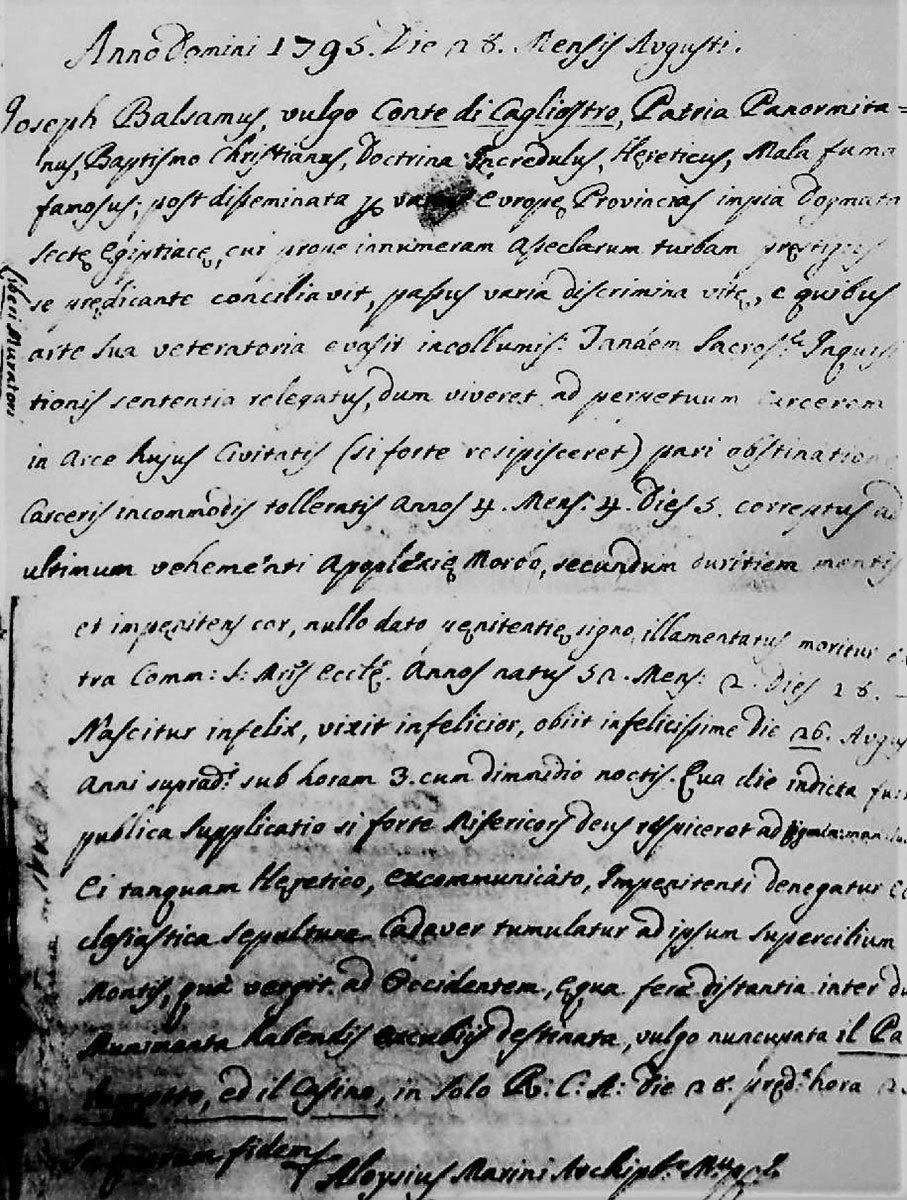 Anno Domini 1795. Die 28. Mensis Avgusti.
Joseph Balsamus, vulgo Conte di Cagliostro, Patria Panormita=
nus, Baptismo Christianus, Doctrina Incredulus, Hęreticus, Mala fama
famosus; post disseminata p Evropę Provincias impia Dogmata
sectę Egiptiacę, cui prope innumeram asseclarum turbam pręstigiis
se prędicante conciliavit, passus varia discrimina vitę, e quibus
arte sua veteratoria evasit incollumis: Tandem Sacrosś.ę Inquisi
tionis sententia relegatus, dum viveret ad perpetuum carcerem
in Arce hujus Civitatis (si forte resipisceret) pari obstinatione
Carceris incommodis tolleratis Annos 4. Mens: 4. Dies 5. correptus ad
ultimum vehementi Apoplexię Morbo, secundum duritiem mentis
et impęnitens cor, nullo dato pęnitentię signo, illamentatus moritur ex
tra Comm: S: Mris Ecclę. Annos natus 52. Mens: 2. Dies 18. –
Nascitur infelix, vixit infelicior, obiit infelicissime die 26. Avgus
Anni suprad.i sub horam 3. cum dimmidio noctis. Qua die indicta fuit
publica supplicatio si forte Misericors deus respiceret ad
Ei tanquam Hęretico, excommunicato, Impęnitenti denegatur ec
clesiastica sepultura Cadaver tumulatur ad ipsum supercilium
Montis, quà vergit ad Occidentem, ęqua ferè distantia inter du
Munimenta habendis excubiis destinata, vulgo nuncupata il Pa
lazzetto, ed il Casino, in solo R: C: A: die 28. pręd.a hora 2
In quorum fidem
Aloysius Marini Archip.r
Liberi Muratori